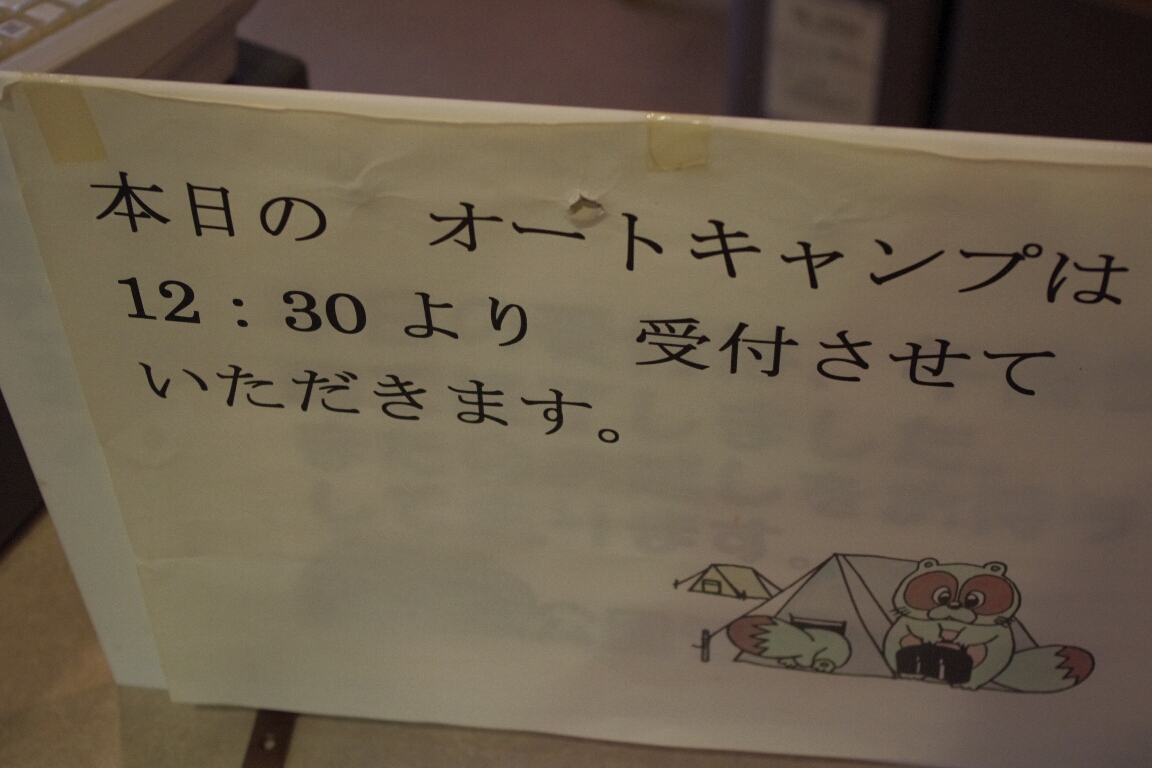 本日の　オートキャンプは
12：30 より　受付させて
いただきます。